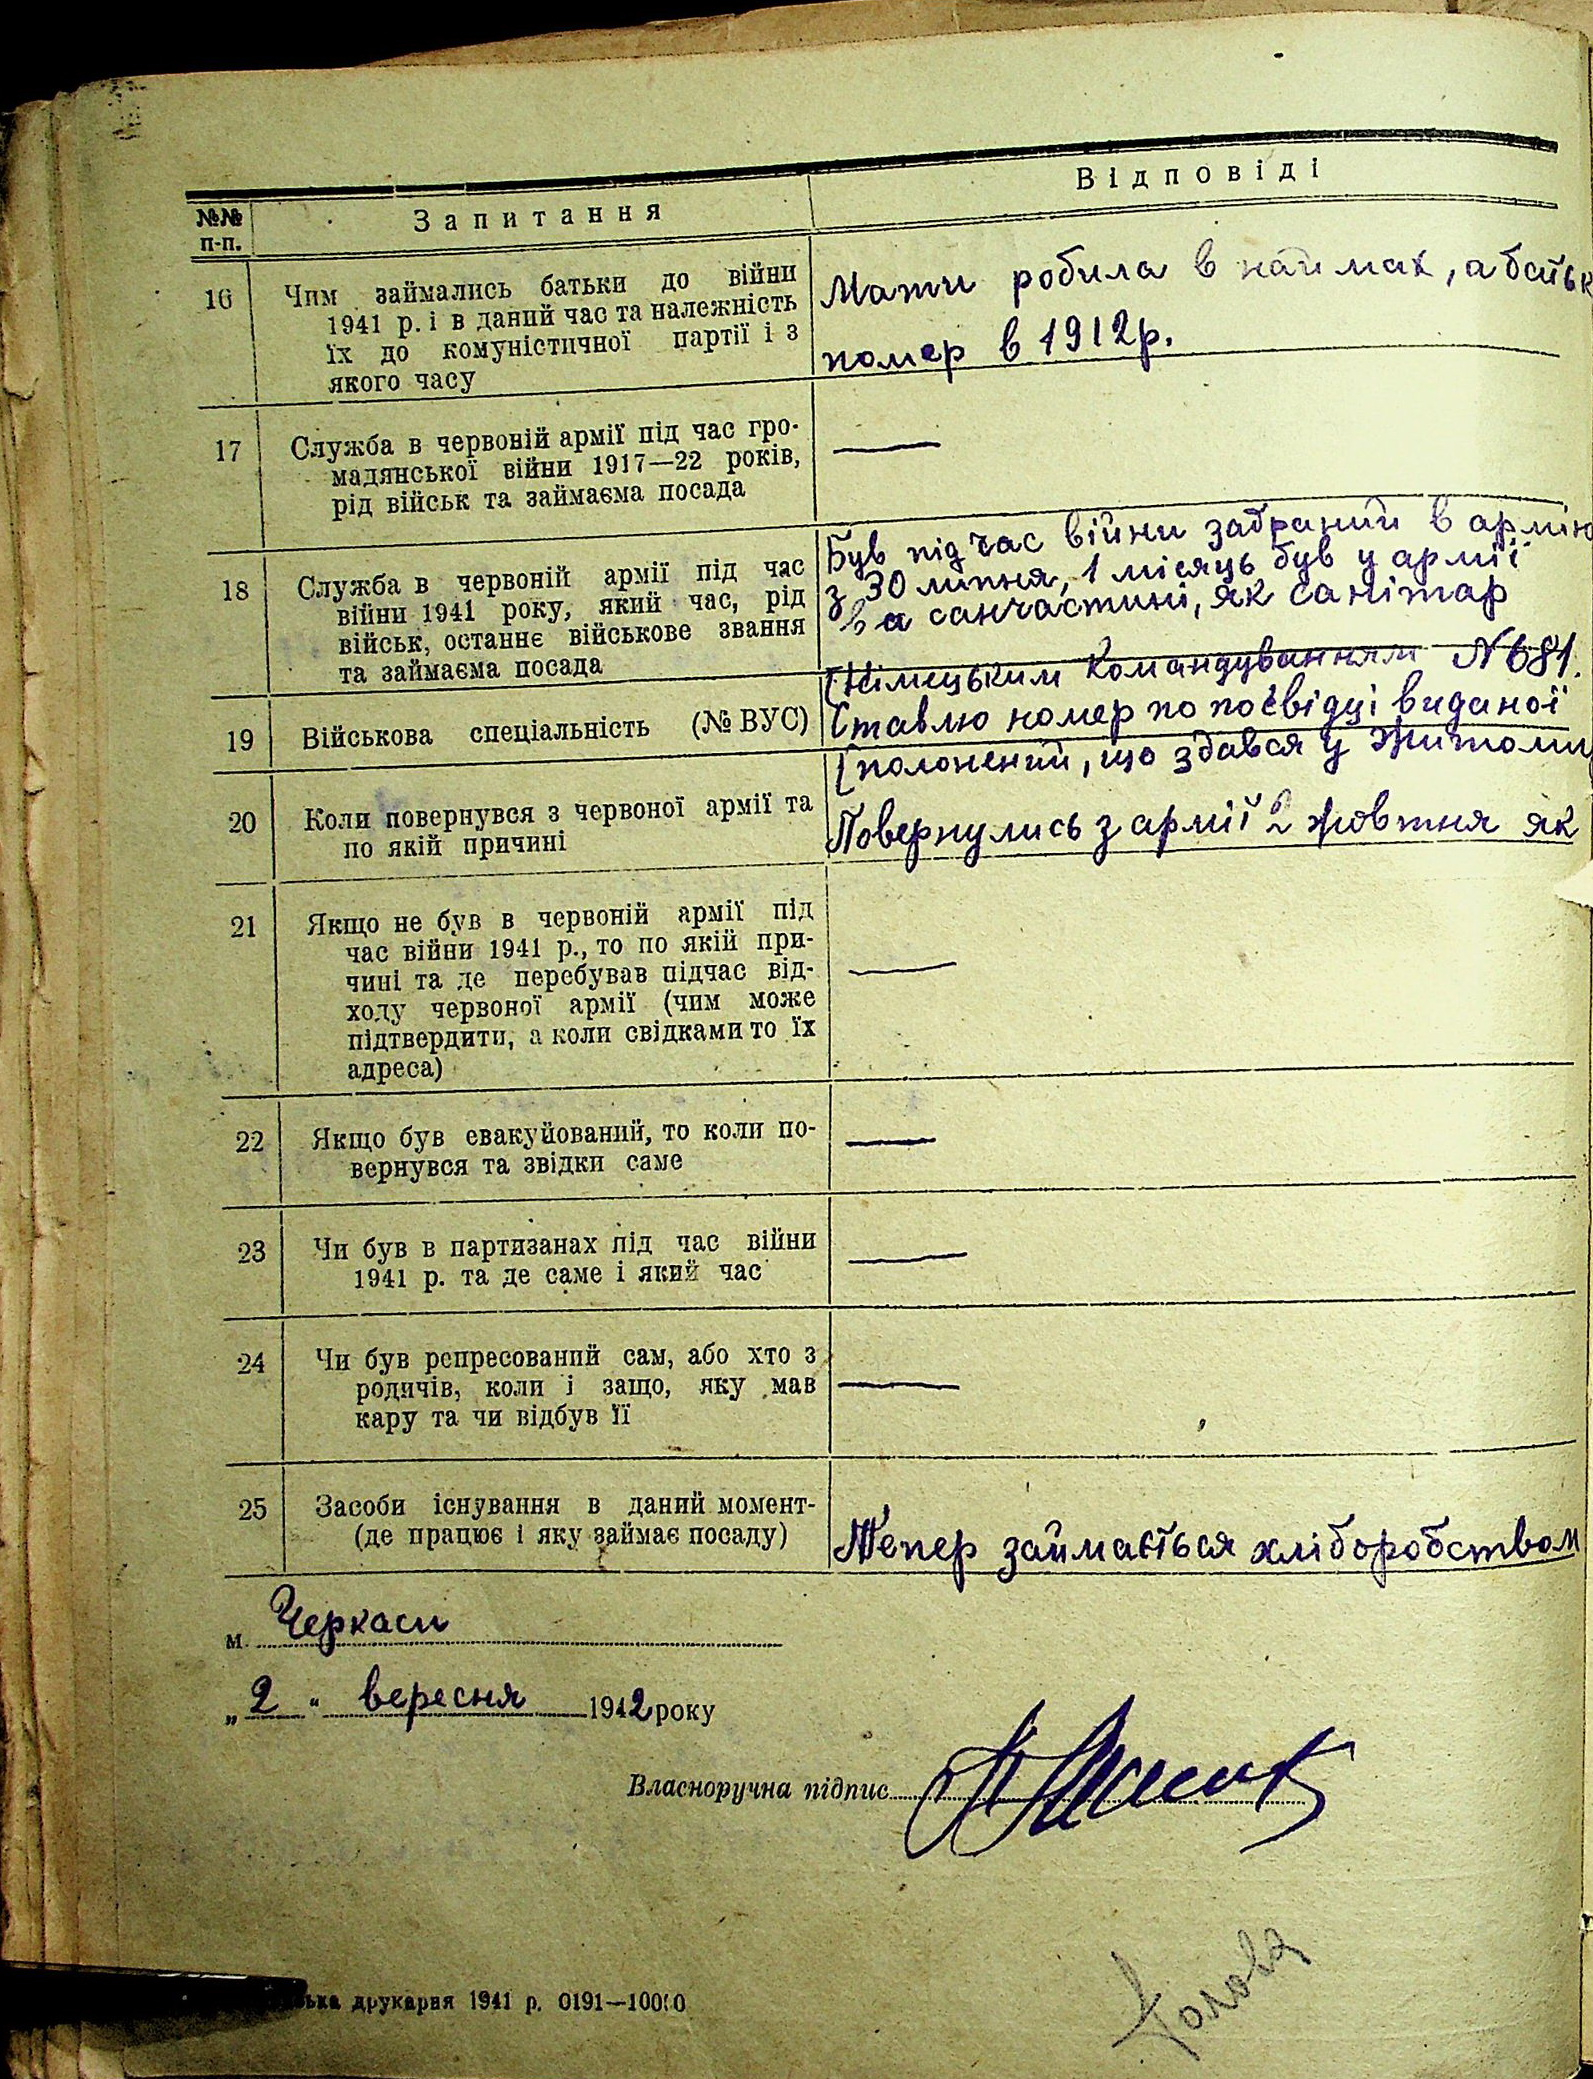 №№
п-п.
Запитання
Відповіді
16
Чим займались батьки до війни
1941 р. і в даний час та належність
їх до комуністичної партії і з
якого часу
Мати робила в наймах, а батьк
помер в 1912р.
17
Служба в червоній армії під час гро-
мадянської війни 1917—22 років,
рід військ та займаєма посада
—
18
Служба в червоній армії під час
війни 1941 року, який час, рід
військ, останнє військове звання
та займаєма посада
Був під час війни забраний в армію
з 30 липня, 1 місяць був у армії
в санчастині, як санітар
19
Військова спеціальність (№ ВУС)
[Німецьким командуванням N 681.
Ставлю номер по посвідці виданої
20
Коли повернувся з червоної армії та
по якій причині
[полонений, що здався у Житоми
Повернулись з армії 2 жовтня як
21
Якщо не був в червоній армії під
час війни 1941 р., то по якій при-
чині та де перебував підчас від-
ходу червоної армії (чим може
підтвердити, а коли свідками то їх
адреса)
—
22
Якщо був евакуйований, то коли по-
вернувся та звідки саме
—
23
Чи був в партизанах під час війни
1941 р. та де саме і який час
—
24
Чи був репресований сам, або хто з
родичів, коли і защо, яку мав
кару та чи відбув її
—
25
Засоби існування в даний момент-
(де працює і яку займає посаду)
Тепер займається хліборобством
м. Черкаси
„2" вересня 1942 року
Власноручна підпис
Голова
ька друкарня 1941 р. 0191—10000